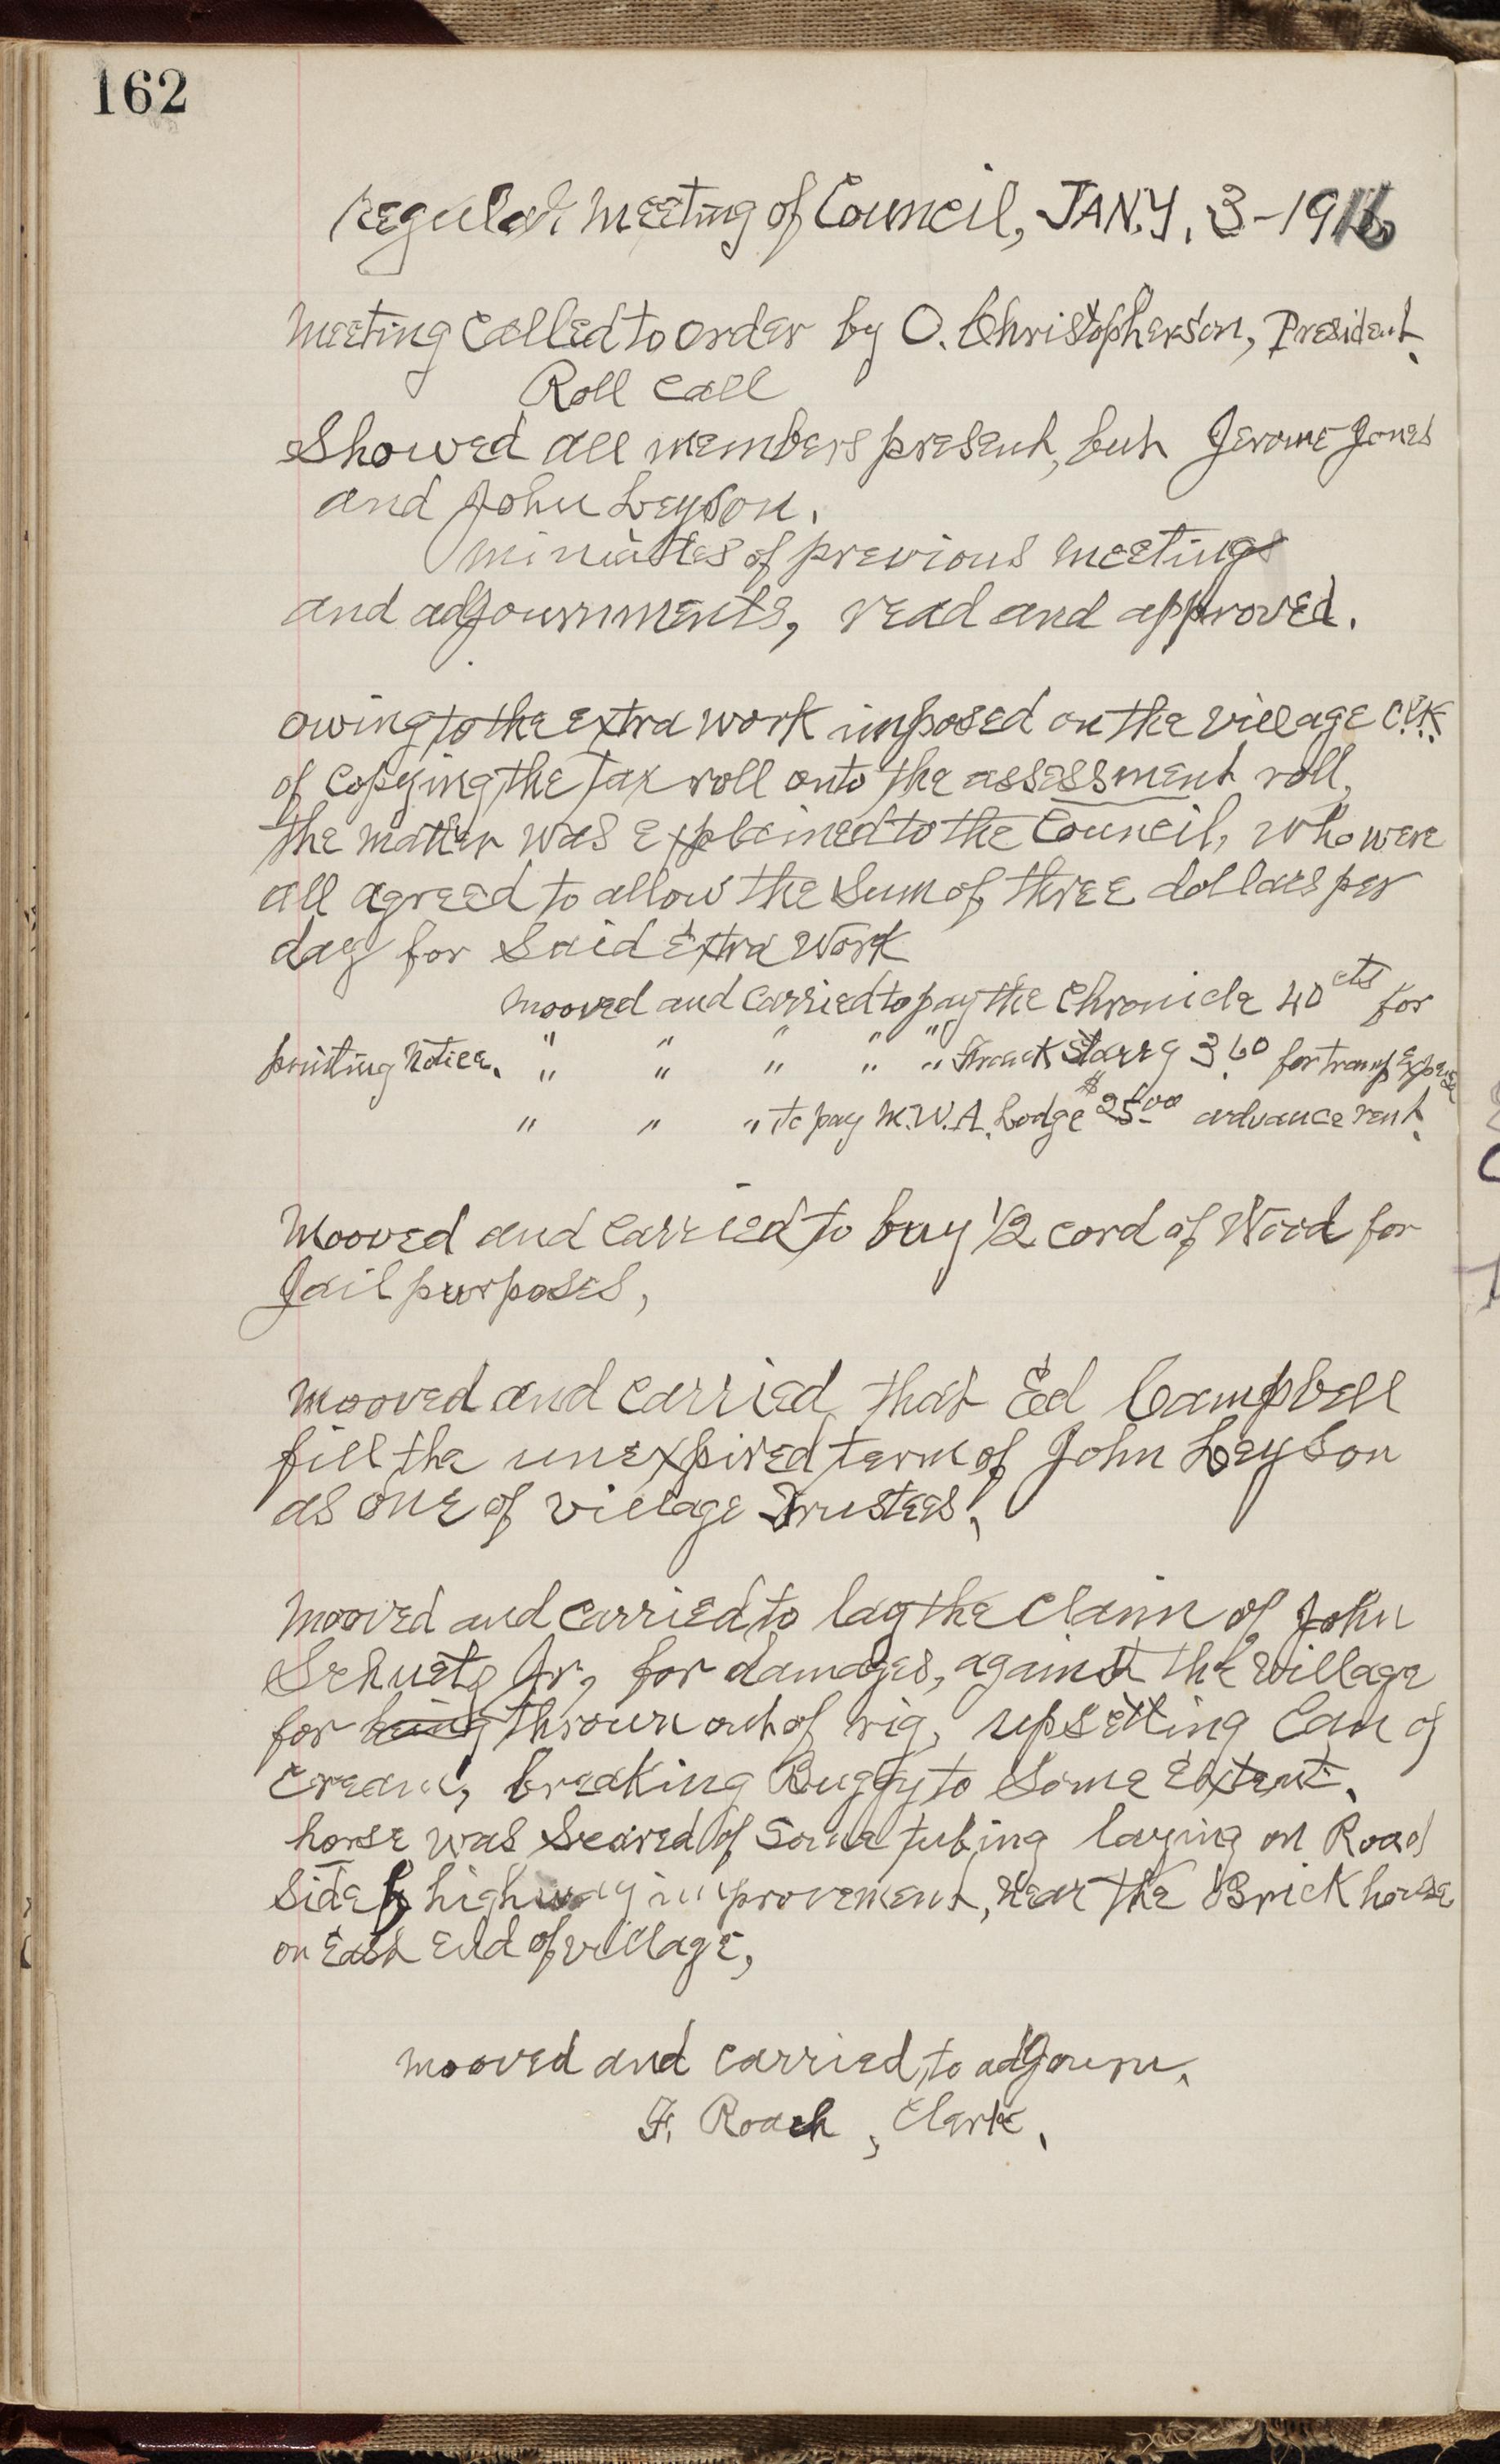 162
regular Meeting of Council, JAN.Y. 3-1916
Meeting Called to order by O. Christopherson, President.
Roll Call
Showed all members present, but Jerome Jones
and John Leyson.
Minuites of previous meetings
and adjournments, read and approved.
owing to the extra work imposed on the village Clk.
of Copying the Tax roll onto the assessment roll,
the matter was explained to the Council, who were
all agreed to allow the Sum of three dollars per
day for Said Extra Work
Mooved and Carried to pay the Chronicle 40 cts for
printing Notice. " " " " "
" " " " " Starry 3.60 for tramp Expense
" " " to pay M.W.A. Lodge $25.00 advance rent.
Mooved and Carried to buy 1/2 cord of Wood for
Jail purposes,
Mooved and Carried, that Ed Campbell
fill the unexpired term of John Leyson
as one of village Trustees.
Mooved and carried to lay the Claim of John
Schuetz Jr, for damages, against the village
for being thrown out of rig, upsetting Can of
Cream, breaking Buggy to Some Extent.
horse was Scared of Some tubing laying on Road
Side by highway improvement, near the Brick house
on East End of village,
mooved and carried, to adjourn.
F. Roach, Clark.